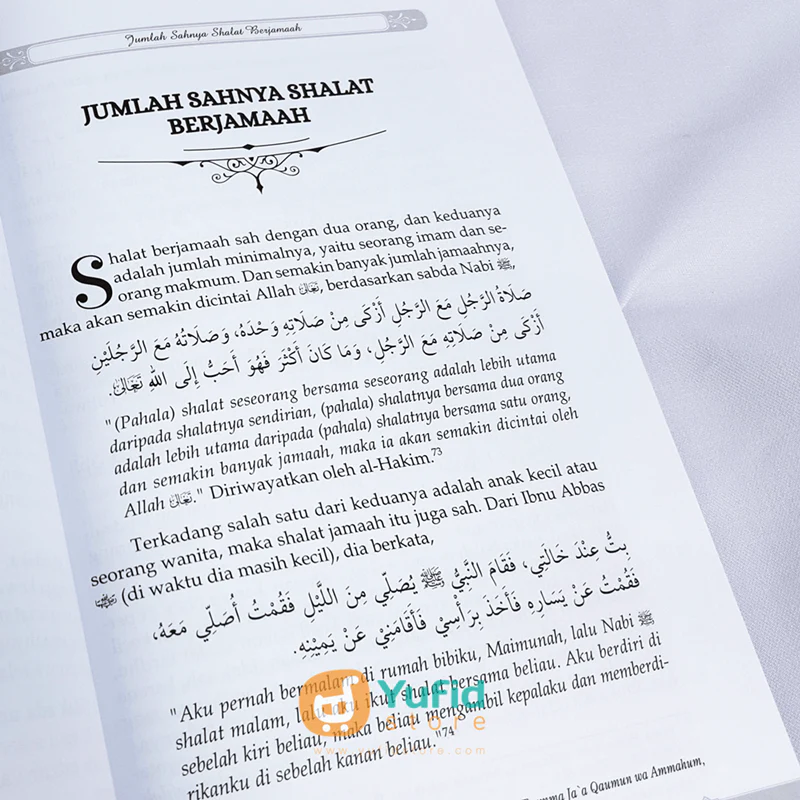 Jumlah Sahnya Shalat Berjamaah
JUMLAH SAHNYA SHALAT
BERJAMAAH
Shalat berjamaah sah dengan dua orang, dan keduanya
adalah jumlah minimalnya, yaitu seorang imam dan se-
orang makmum. Dan semakin banyak jumlah jamaahnya,
maka akan semakin dicintai Allah تَعَالَى, berdasarkan sabda Nabi ﷺ,
صَلَاةُ الرَّجُلِ مَعَ الرَّجُلِ أَزْكَى مِنْ صَلَاتِهِ وَحْدَهُ، وَصَلَاتُهُ مَعَ الرَّجُلَيْنِ
أَزْكَى مِنْ صَلَاتِهِ مَعَ الرَّجُلِ، وَمَا كَانَ أَكْثَرَ فَهُوَ أَحَبُّ إِلَى اللهِ تَعَالَى.
"(Pahala) shalat seseorang bersama seseorang adalah lebih utama
daripada shalatnya sendirian, (pahala) shalatnya bersama dua orang
adalah lebih utama daripada (pahala) shalatnya bersama satu orang,
dan semakin banyak jamaah, maka ia akan semakin dicintai oleh
Allah تَعَالَى." Diriwayatkan oleh al-Hakim.73
Terkadang salah satu dari keduanya adalah anak kecil atau
seorang wanita, maka shalat jamaah itu juga sah. Dari Ibnu Abbas
(di waktu dia masih kecil), dia berkata,
بِتُّ عِنْدَ خَالَتِي، فَقَامَ النَّبِيُّ ﷺ يُصَلِّي مِنَ اللَّيْلِ فَقُمْتُ أُصَلِّي مَعَهُ،
فَقُمْتُ عَنْ يَسَارِهِ فَأَخَذَ بِرَأْسِيْ فَأَقَامَنِيْ عَنْ يَمِيْنِهِ.
"Aku pernah bermalam di rumah bibiku, Maimunah, lalu Nabi ﷺ
shalat malam, lalu aku ikut shalat bersama beliau. Aku berdiri di
sebelah kiri beliau, maka beliau mengambil kepalaku dan memberdi-
rikanku di sebelah kanan beliau."74
Yufid
store
Ja`a Qaumun wa Ammahum,